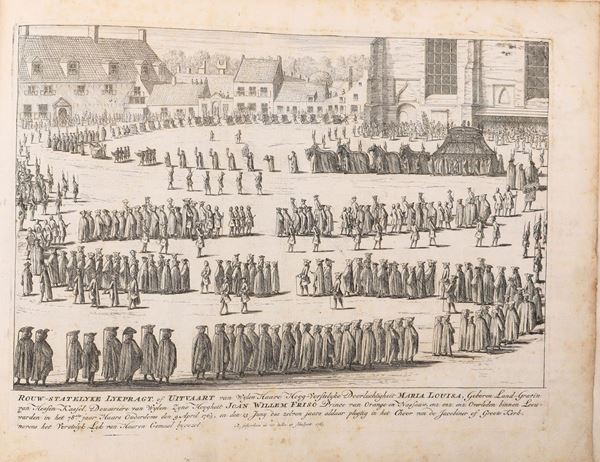 ROUW-STATELYKE LYKPRAGT, of UITVAART van Wylen Haare Hoog-Vorstelyke Doorluchtigheit MARIA LOUISA, Geboren Land-Gravin
van Hessen-Kassel, Douariere van Wylen Zyne Hoogheit JOAN WILLEM FRISO Prince van Orange en Nassauw, enz. enz. enz. Overleden binnen Leeu-
warden in het 78ste jaar Haars Ouderdoms den 9 April 1765, en den 13 Juny des zelven jaars aldaar plegtig in het Choor van de Jacobiner of Groote Kerk
nevens het Vorstelyk Lyk van Haaren Gemaal bygezet